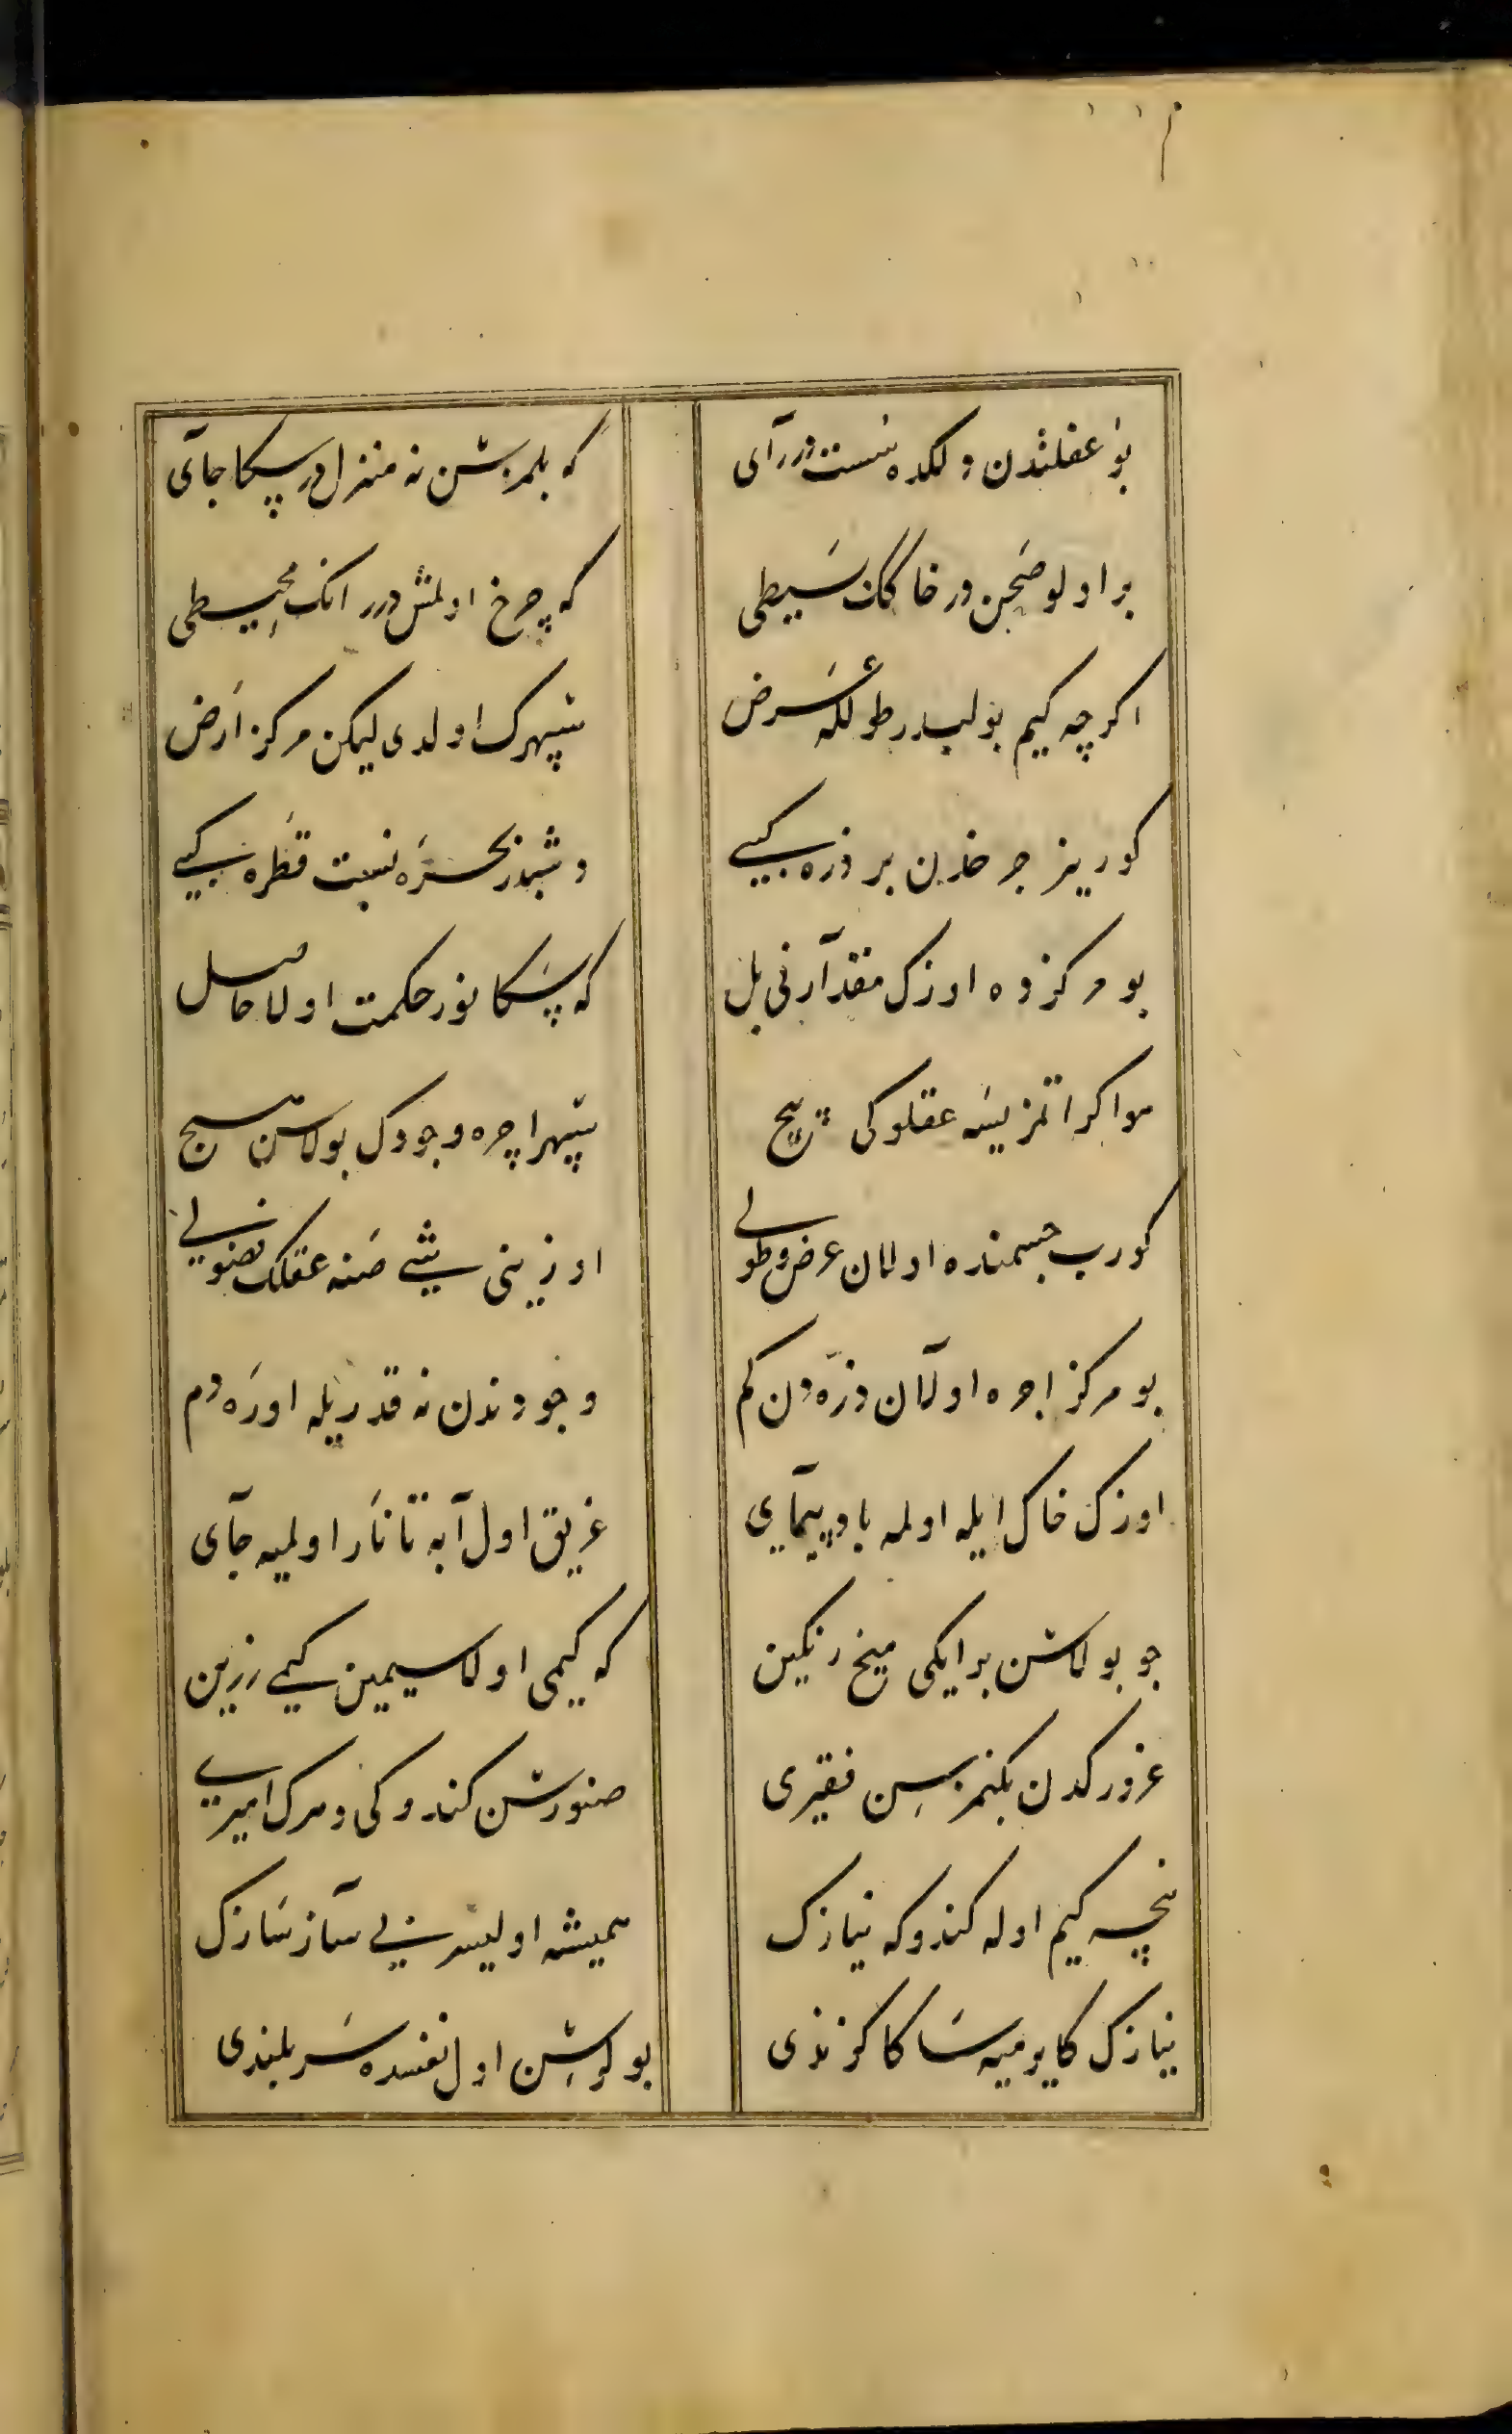 بو عقلندن دلکده سست درر آی
که بلمزسن نه منزل در سکا جای
بر اولو صحن در خاکک بسیطی
که چرخ اولمش درر انک محیطی
اکرچه کیم بولبدر طوللە عرض
سپهرک اولدی لیکن مرکز ارض
کورینر چرخدن بر ذره کیبی
دشبدر بحره نسبت قطره کیبی
بو مرکزده اوزک مقدارنی بل
که سکا نور حکمت اولا حاصل
هوا کر اتمزیسه عقلوکی پیچ
سپهر اچره وجودک بولاسن هیچ
کورب جسمنده اولان عرض و طولی
اوزینی نیتە صنه عقلک فضولی
بو مرکز اچره اولان ذره دن کم
وجودندن نه قدریله اوره دم
اوزک خاک ایله اولمه باد پیمای
غریق اول آبه تا نار اولمیه جای
چو بولاسن بر ایکی میخ رنکین
که کیمی اولا سیمین کیمی زرین
غرورکدن بکنمزسن فقیری
صنورسن کندوکی دهرک امیری
نیچه کیم اوله کندوکه نیازک
همیشه اولیسر بی ساز سازک
نیازک کا یرمیه سکا کزندی
بولاسن اول نفسده سربلندی